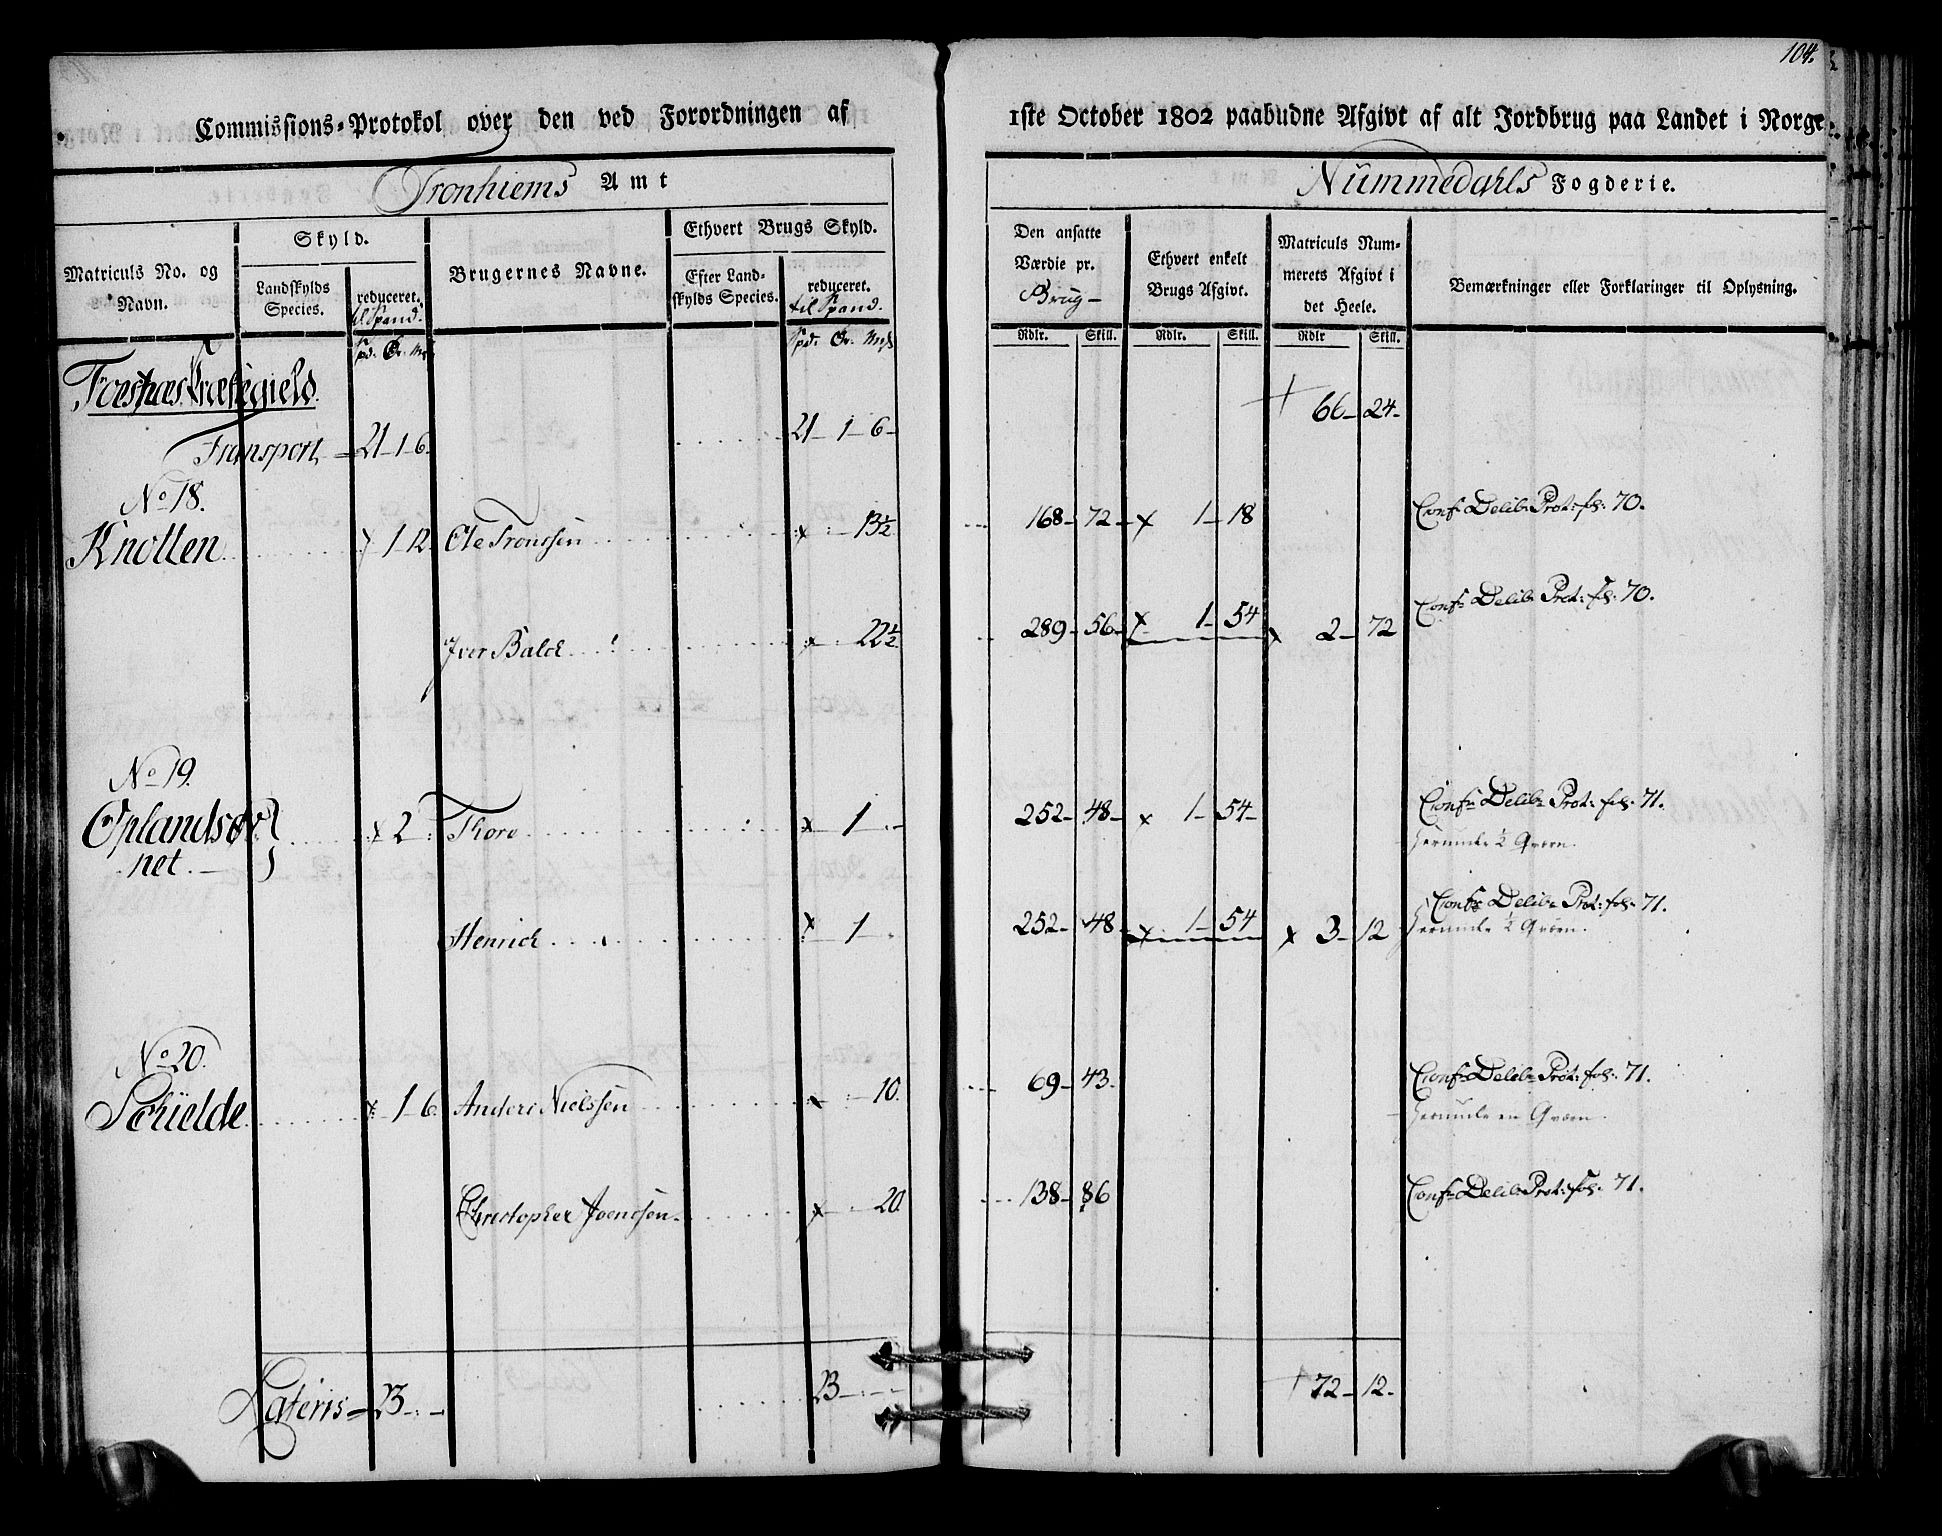 104.
Commissions-Protokol over den ved Forordningen af 1ste October 1802 paabudne Afgivt af alt Jordbrug paa Landet i Norge
Tronhiems Amt
Nummedahls Fogderie.
Matriculs No. og Navn.
Skyld.
Landskylds Species.
reduceret.
til Spand.
Brugernes Navne.
Ethvert Brugs Skyld.
Efter Landskylds Species.
reduceret.
til Spand.
Den ansatte Værdie pr.
Brug
Ethvert enkelt Brugs Afgivt.
Matriculs Nummerets Afgivt i det Heele.
Bemærkninger eller Forklaringer til Oplysning.
Spd. Ör. Mrk
Spd. Ör. Mrk
Rdlr. Skill. Rdlr. Skill. Rdlr Skill.
Foesnæs Præstegield.
Transport = 21-1-6 21-1-6 66-24
No 18.
Knotten 1-12. Ole Tronssen 13½ 168-72 1-18 Conf: Delib: Prot: fol: 70.
Iver Balck 22½ 289-56 1-54 2-72 Conf: Delib: Prot: fol: 70.
No 19.
Oplandsøer
net. 2 Thore 1 252-48 1-54 Conf: Delib: Prot: fol: 71.
herunder ½ Qværn.
Henrich 1 252-48 1-54 3-12 Conf: Delib: Prot: fol: 71.
herunder ½ Qværn.
No 20.
1-6 Anders Nielssen 10. 69-43 Conf: Delib: Prot: fol: 71.
herunder en Qværn.
Christopher Joenssen 20. 138-86 Conf: Delib: Prot: fol: 71.
Lateris = 23 23 72-12